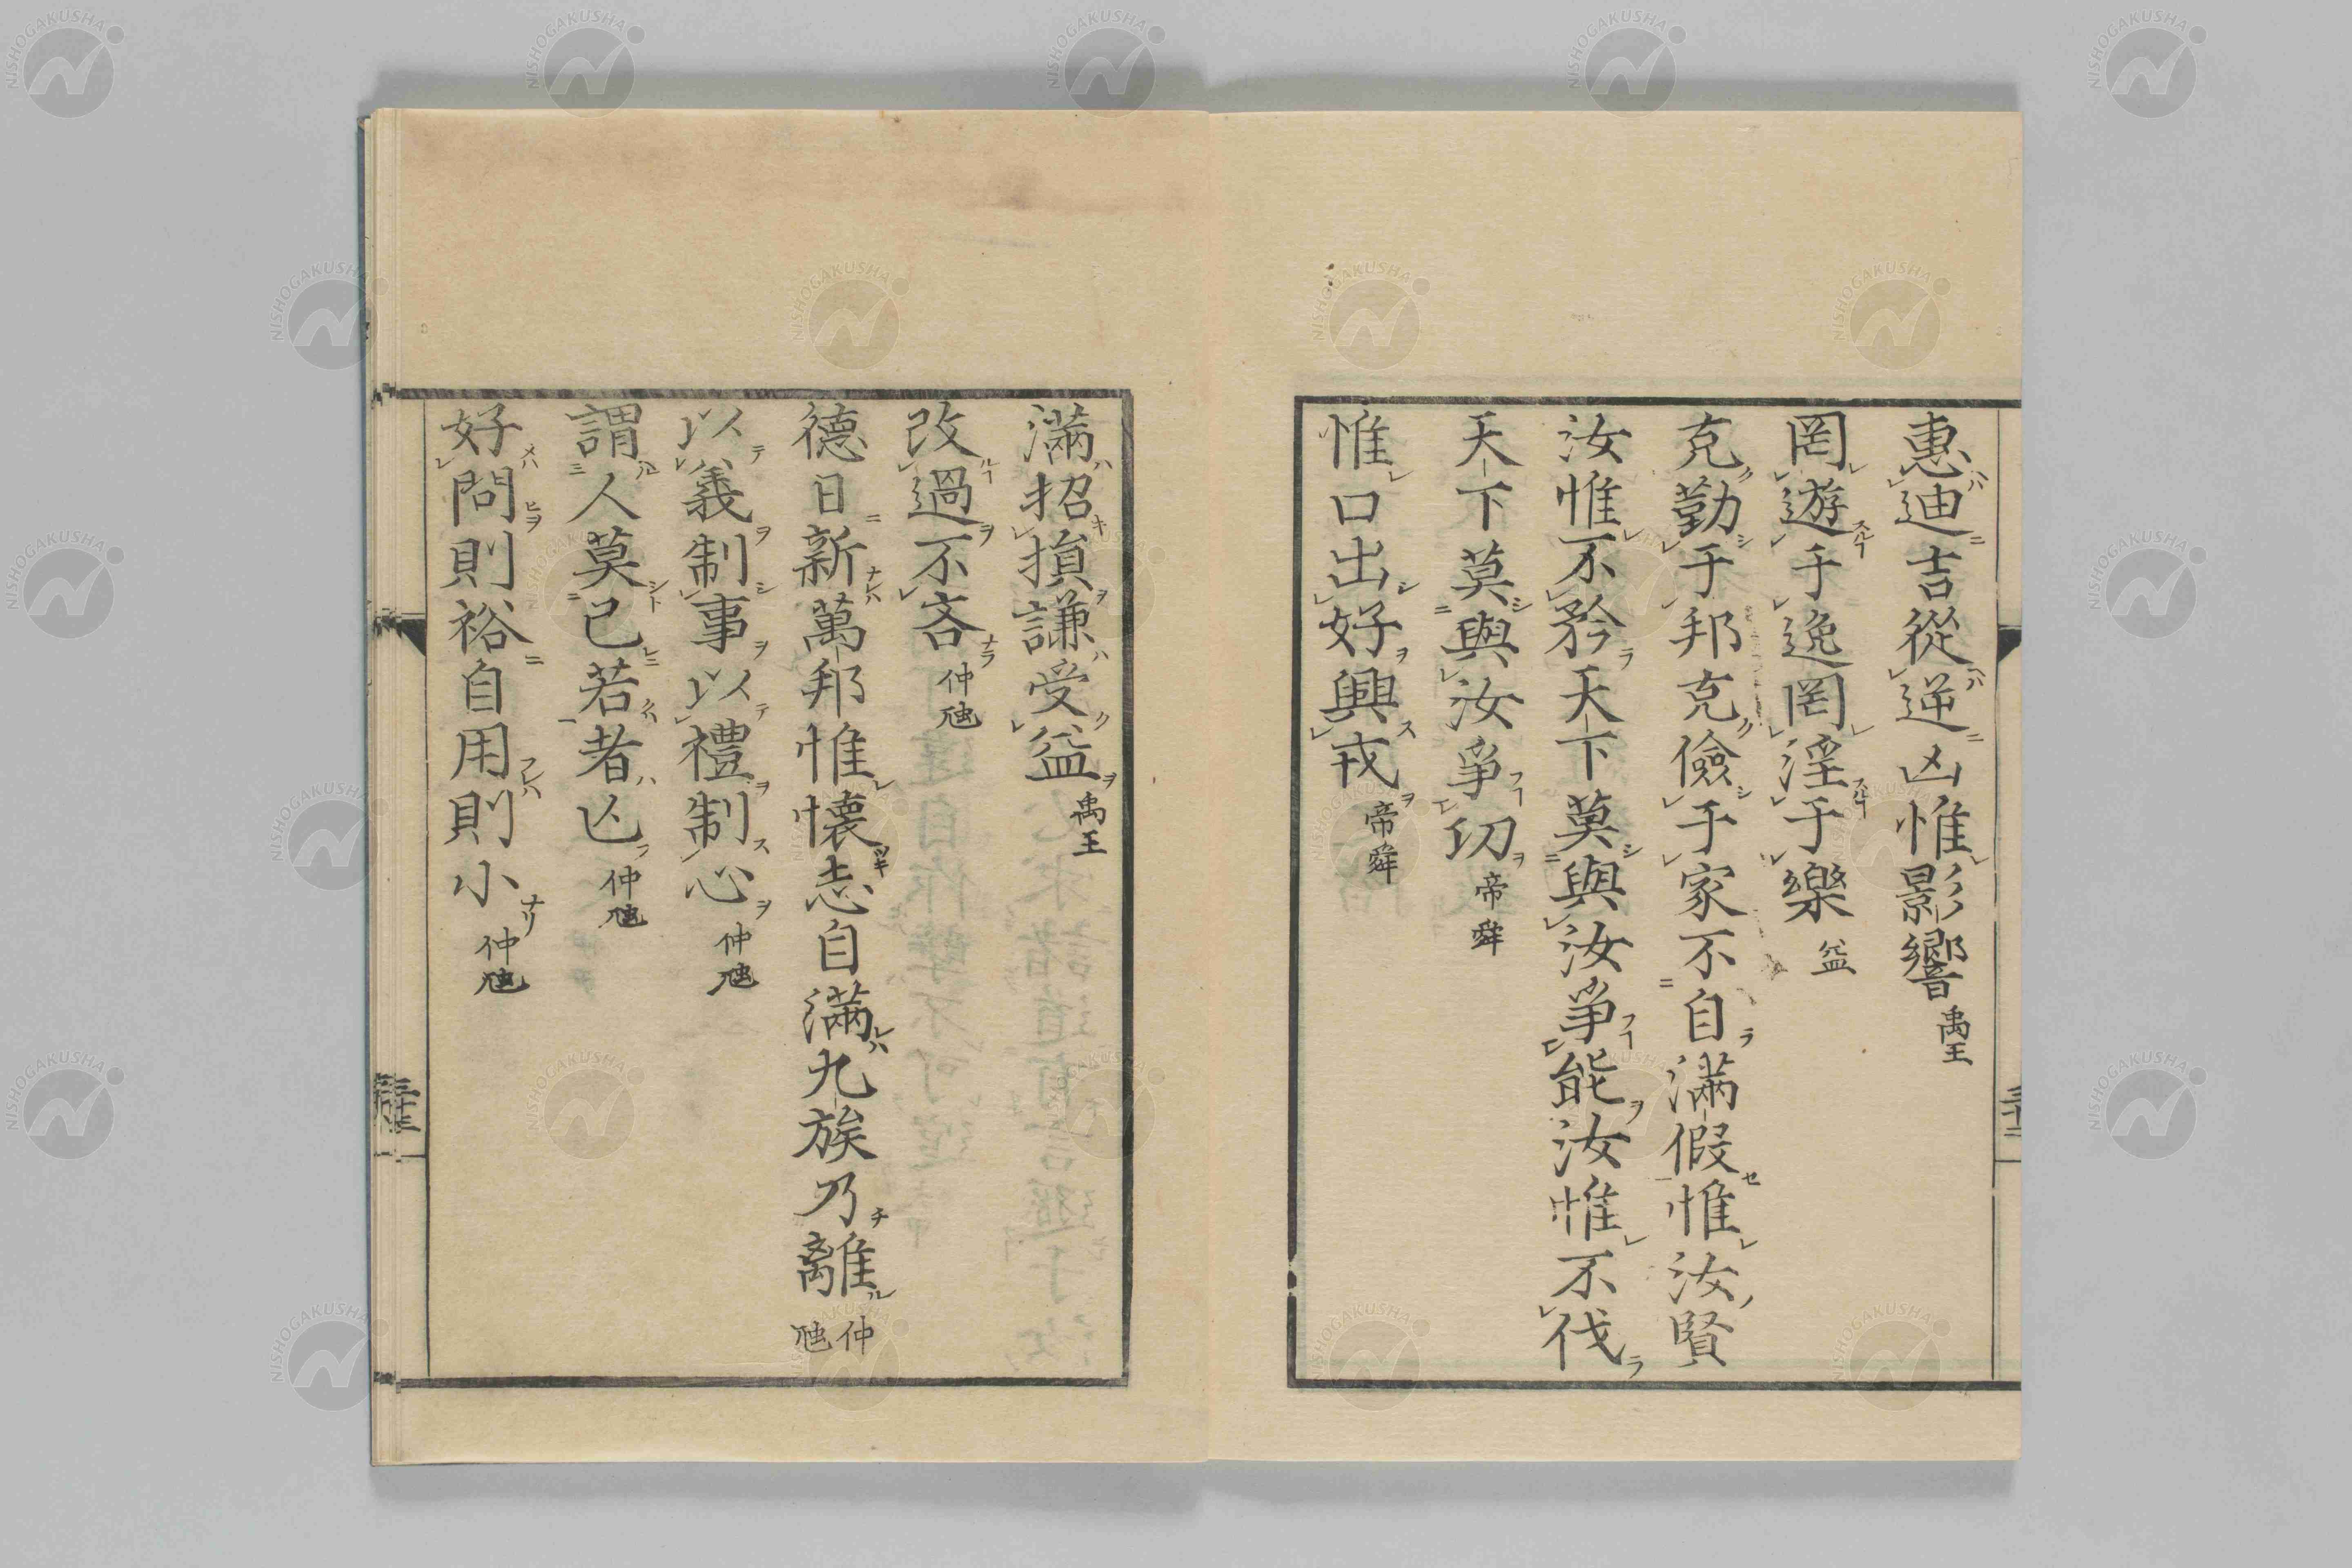 惠迪吉從逆凶惟影響 禹王
罔遊于逸罔淫于樂 益
克勤于邦克儉于家不自滿假惟汝賢
汝惟不矜天下莫與汝爭能汝惟不伐
天下莫與汝爭功 帝舜
惟口出好興戎 帝舜
滿招損謙受益 禹王
改過不吝 仲虺
德日新萬邦惟懷志自滿九族乃離 仲虺
以義制事以禮制心 仲虺
謂人莫己若者亾 仲虺
好問則裕自用則小 仲虺
NISHOGAKUSHA